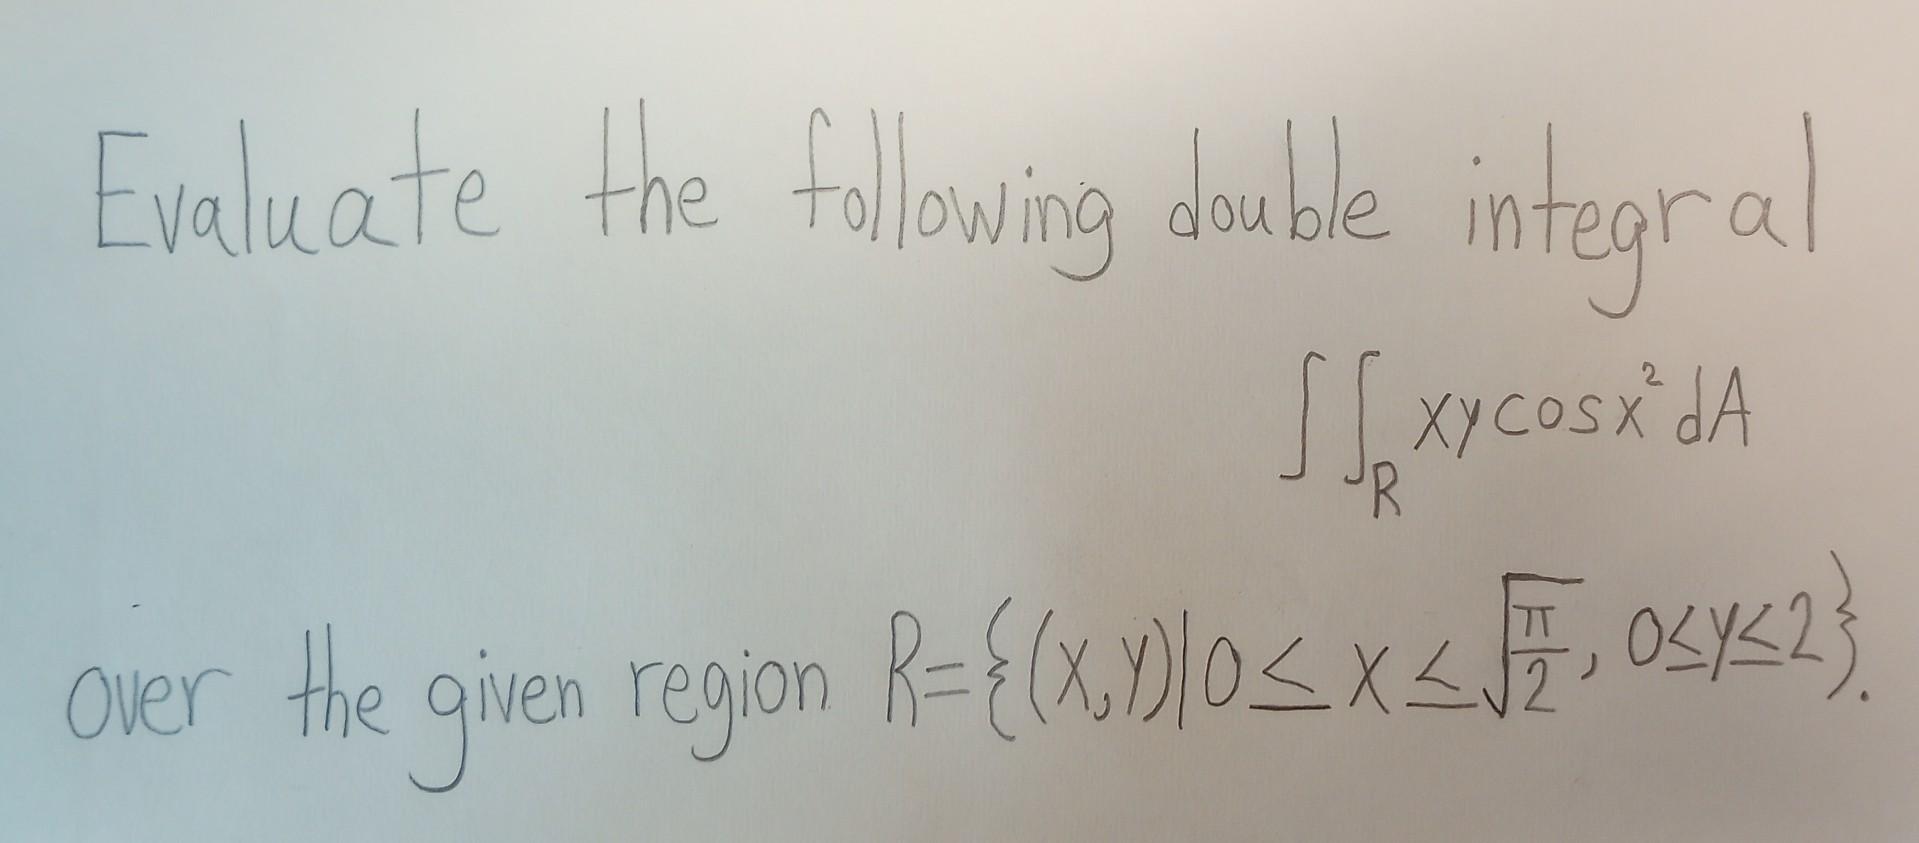 Evaluate the following double integral
∫∫_R xycosx² dA
over the given region R={(x,y)|0≤x≤√(π/2), 0≤y≤2}.